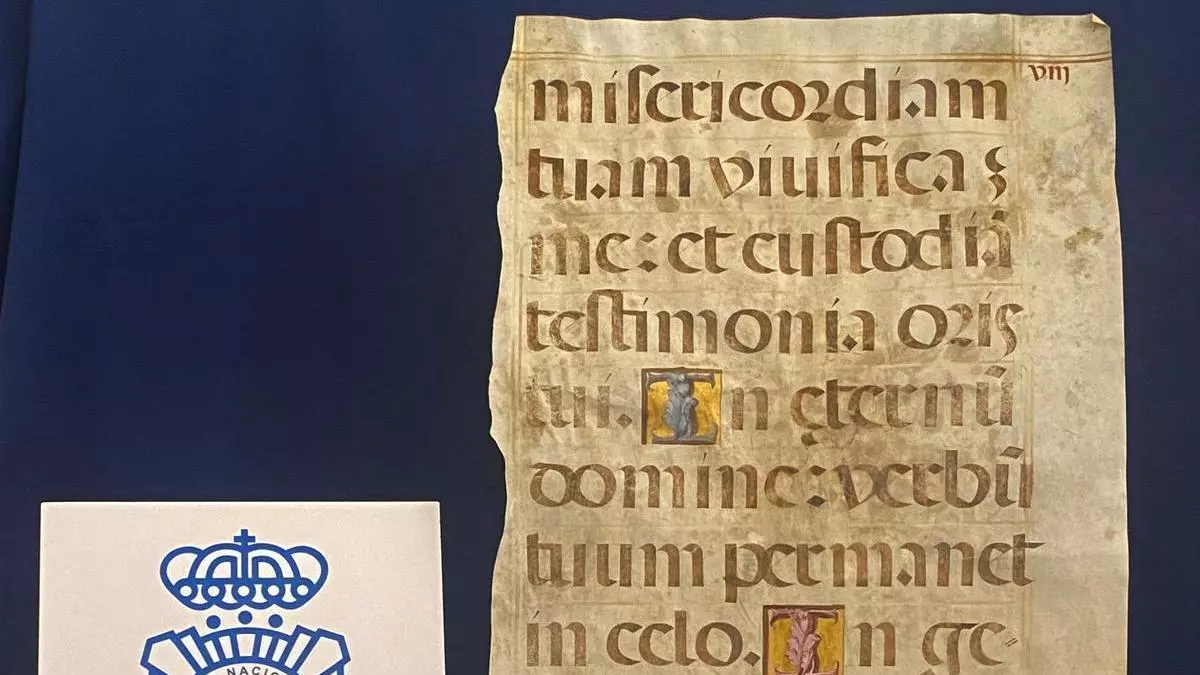 miſericordiam
viij
tuam viuifica
me: et cuſtodiā
teſtimonia oris
tui. In ęternū
domine: verbū
tuum permanet
in celo. In ge⸗
NACIO